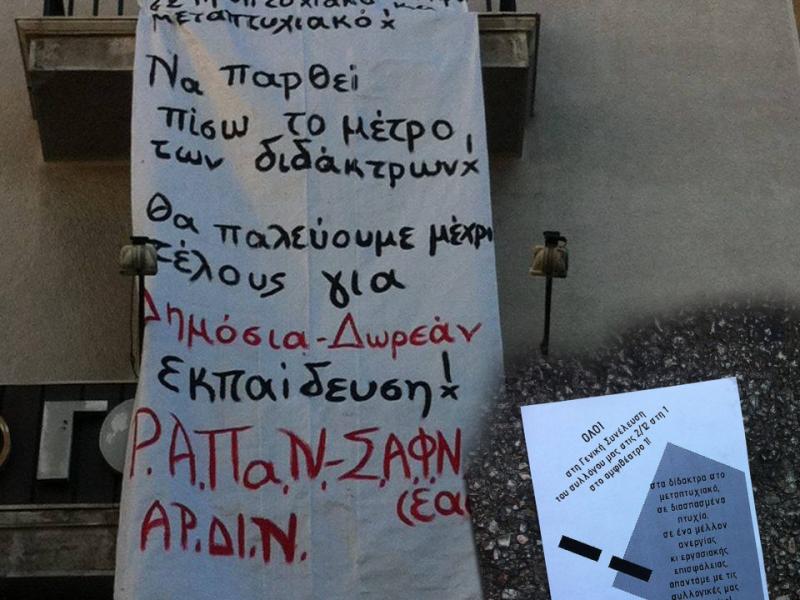 μεταπτυχιακό!
Να παρθεί
πίσω το μέτρο
των διδάκτρων!
Θα παλεύουμε μέχρι
τέλους για
Δημόσια-Δωρεάν
εκπαίδευση!
Ρ.Α.Πα.Ν-Σ.Α.Φ.Ν
(εαα
ΑΡ.ΔΙ.Ν.
ΟΛΟΙ
στη Γενική Συνέλευση
του συλλόγου μας στις 2/12 στη 1
στο αμφιθέατρο 1!
στα δίδακτρα στο
μεταπτυχιακό,
σε διασπασμένα
πτυχία,
σε ένα μέλλον
ανεργίας
κι εργασιακής
επισφάλειας,
απαντάμε με τις
συλλογικές μας